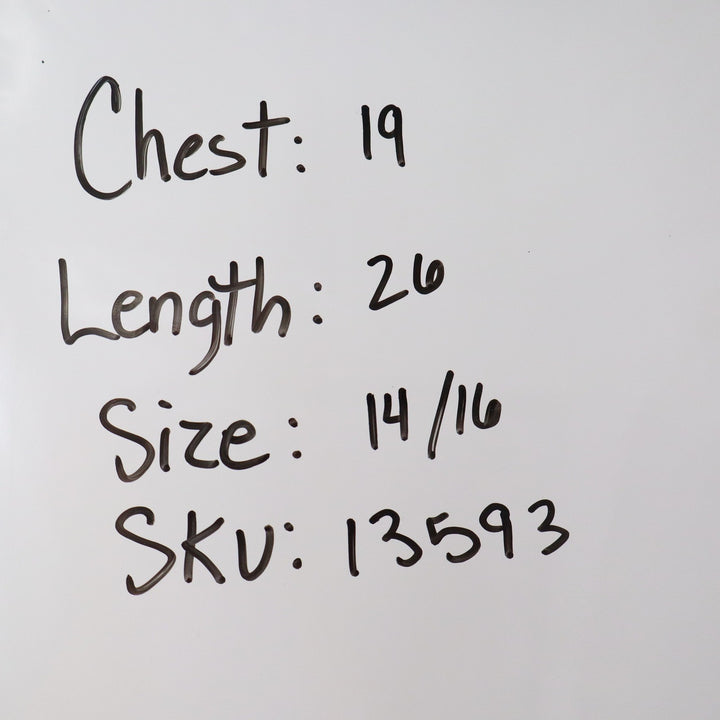 Chest: 19
Length: 26
Size: 14/16
SKU: 13593